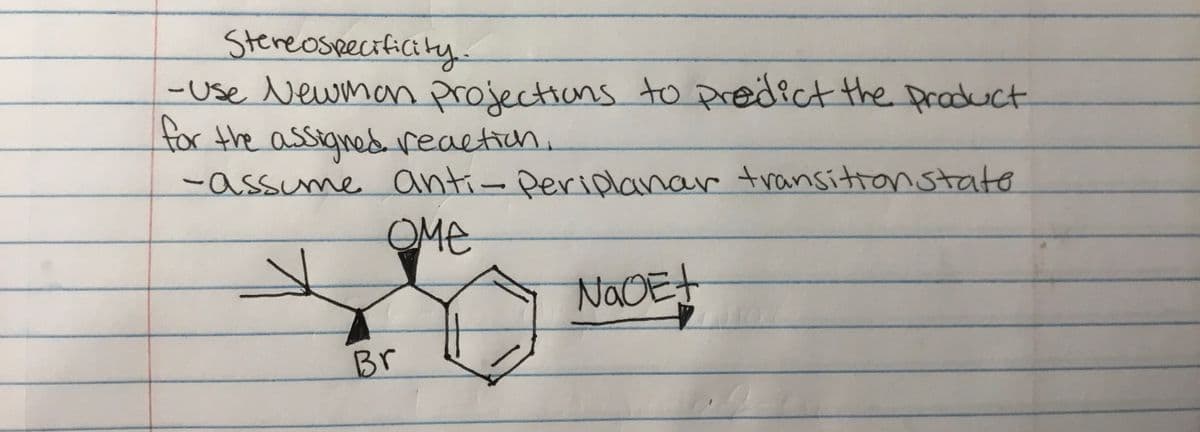 Stereospecificity.
-Use Newman projections to predict the product
for the assigned reaction.
-assume anti-periplanar transitionstate
OMe
NaOEt
Br